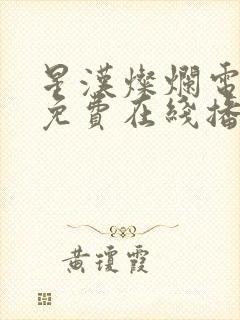 星漢燦爛電
免費在綫播
黃瓊霞